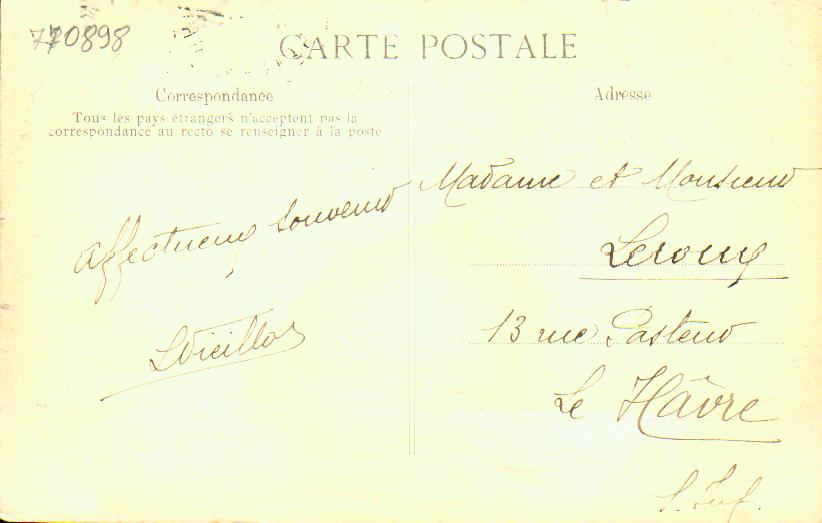 770898
CARTE POSTALE
Correspondance
Tous les pays étrangers n'acceptent pas la
correspondance au recto se renseigner à la poste
Affectueux souvenir
Adresse
Madame et Monsieur
Leroux
13 rue Pasteur
Le Hâvre
S. Inf.